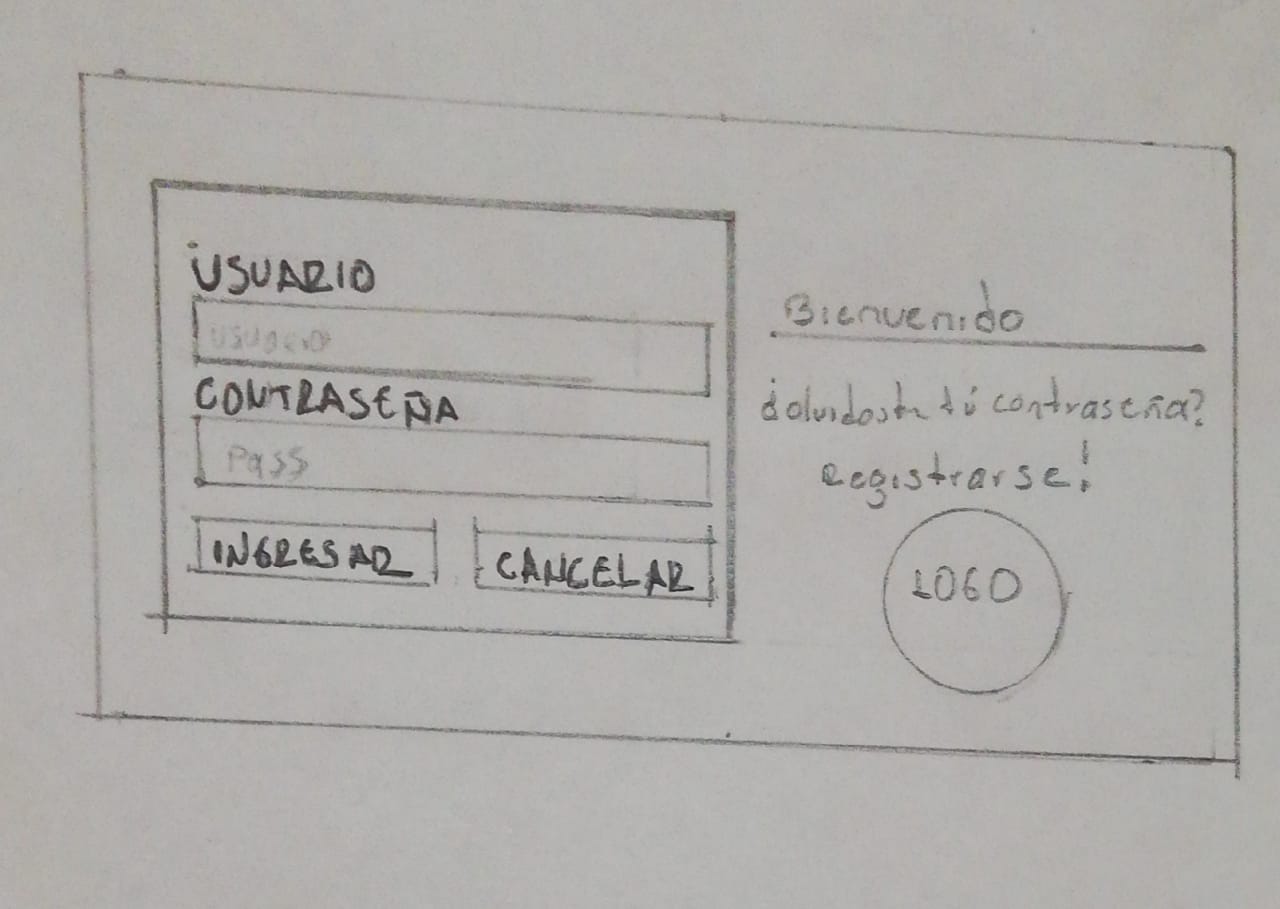 USUARIO
usuario
CONTRASEÑA
Pass
INGRESAR
CANCELAR
Bienvenido
¿olvidaste tú contraseña?
Registrarse!
LOGO